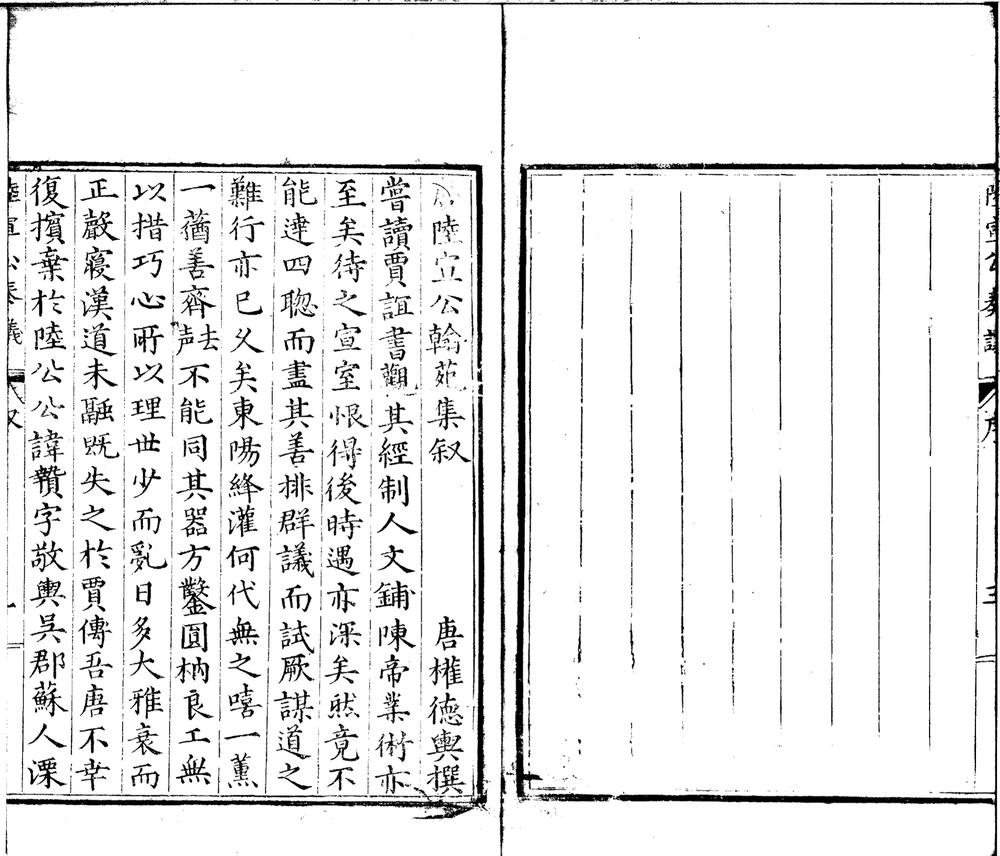 陸宣公奏議
序
陸宣公翰苑集叙
唐權德輿撰
嘗讀賈誼書觀其經制人文鋪陳帝業術亦
至矣待之宣室恨得後時遇亦深矣然竟不
能達四聰而盡其善排群議而試厥謀道之
難行亦已久矣東陽絳灌何代無之嘻一薰
一蕕善齊去声不能同其器方鑿圓枘良工無
以措巧心所以理世少而亂日多大雅衰而
正聲寢漢道未融既失之於賈傅吾唐不幸
復擯棄於陸公公諱贄字敬輿吳郡蘇人溧
陸宣公奏議
叙
一